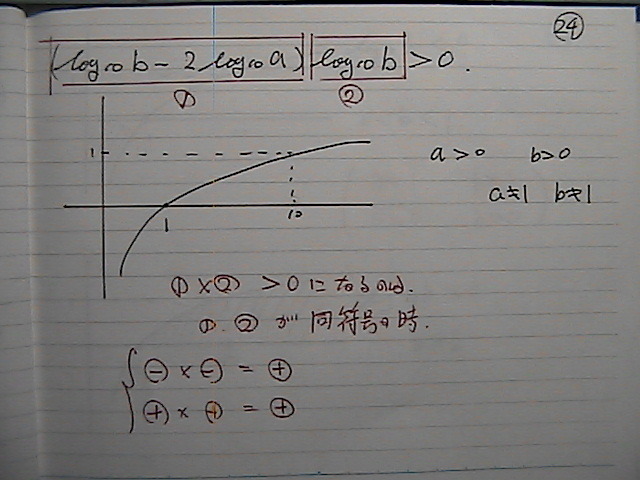 24
(log₁₀ b − 2 log₁₀ a) log₁₀ b > 0.
① ②
1
a > 0 b > 0
a ≠ 1 b ≠ 1
1 10
① × ② > 0 になるのは.
①. ② が 同符号の時.
⊖ × ⊖ = ⊕
⊕ × ⊕ = ⊕